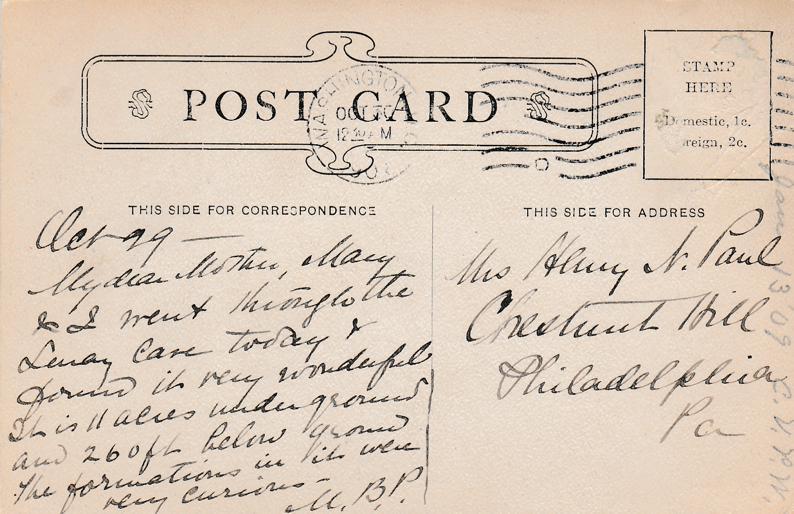 POST CARD
WASHINGTON
OCT 30
12 M
STAMP
HERE
Domestic, 1c.
Foreign, 2c.
THIS SIDE FOR CORRESPONDENCE
Oct 29 —
My dear Mother, Mary
& I went through the
Luray Cave today &
found it very wonderful
It is 11 acres underground
and 260 ft below ground
The formations in it were
very curious —
M. B. P.
THIS SIDE FOR ADDRESS
Mrs Henry N. Paul
Chestnut Hill
Philadelphia
Pa
13 '09